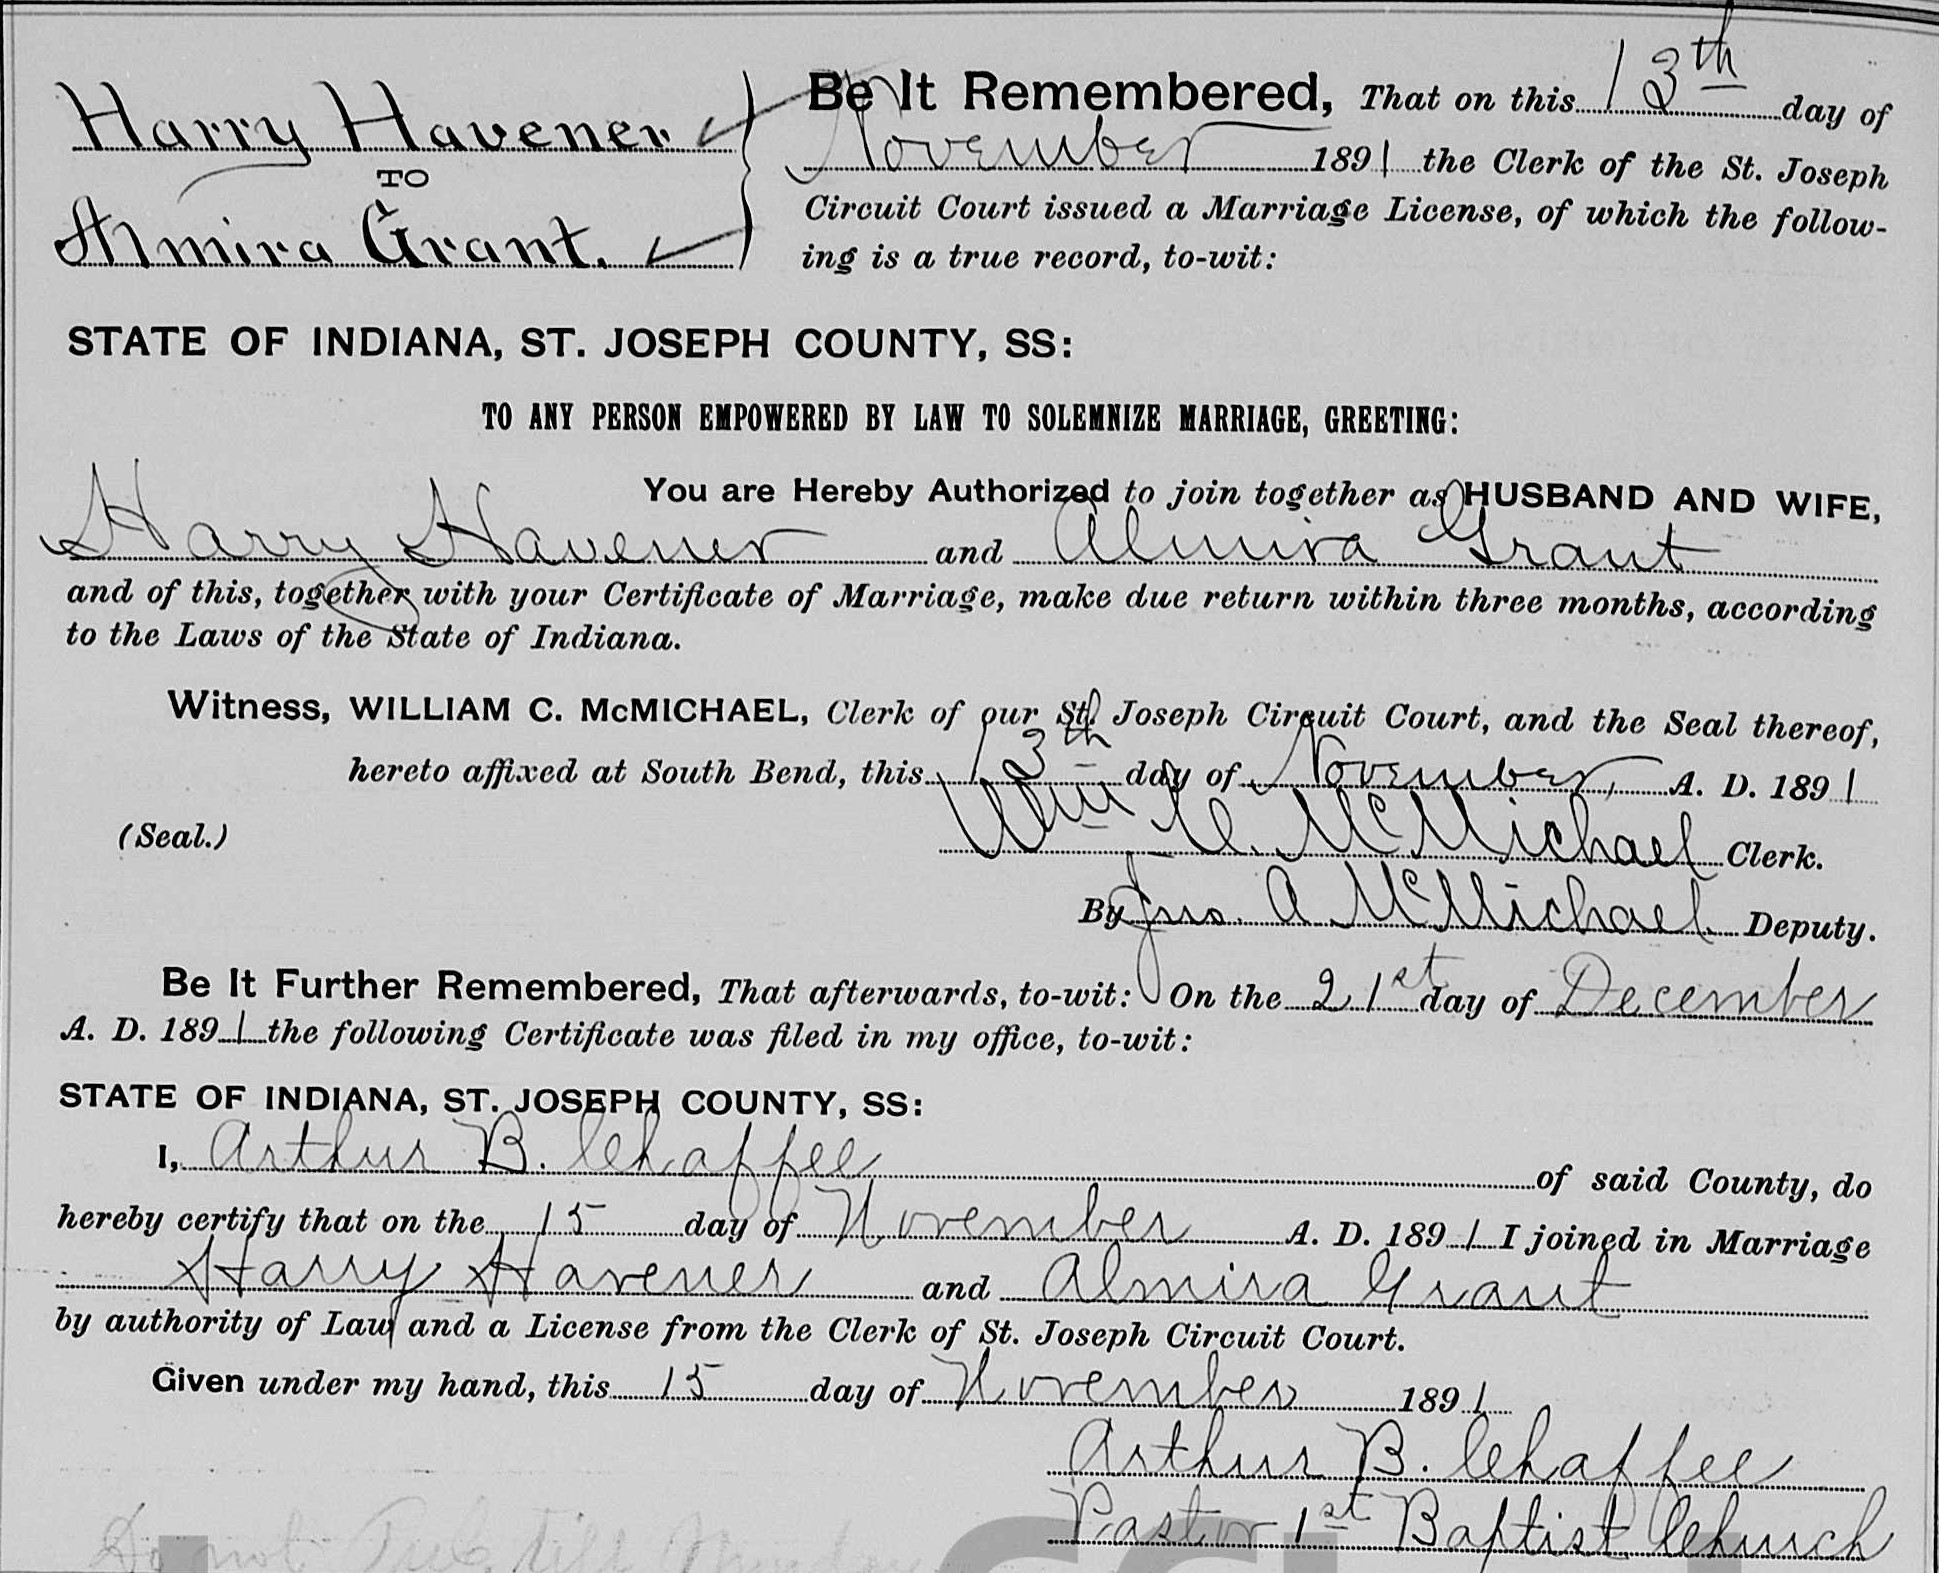 Harry Havener
TO
Almira Grant.
Be It Remembered, That on this 13th day of
November 1891 the Clerk of the St. Joseph
Circuit Court issued a Marriage License, of which the follow-
ing is a true record, to-wit:
STATE OF INDIANA, ST. JOSEPH COUNTY, SS:
TO ANY PERSON EMPOWERED BY LAW TO SOLEMNIZE MARRIAGE, GREETING:
You are Hereby Authorized to join together as HUSBAND AND WIFE,
Harry Havener and Almira Grant
and of this, together with your Certificate of Marriage, make due return within three months, according
to the Laws of the State of Indiana.
Witness, WILLIAM C. McMICHAEL, Clerk of our St. Joseph Circuit Court, and the Seal thereof,
hereto affixed at South Bend, this 13th day of November, A. D. 1891
(Seal.) Wm C. McMichael Clerk.
By Jno. A McMichael Deputy.
Be It Further Remembered, That afterwards, to-wit: On the 21st day of December
A. D. 1891 the following Certificate was filed in my office, to-wit:
STATE OF INDIANA, ST. JOSEPH COUNTY, SS:
I, Arthur B. Chaffee of said County, do
hereby certify that on the 15 day of November A. D. 1891 I joined in Marriage
Harry Havener and Almira Grant
by authority of Law and a License from the Clerk of St. Joseph Circuit Court.
Given under my hand, this 15 day of November 1891
Arthur B. Chaffee
Pastor 1st Baptist Church
Do not